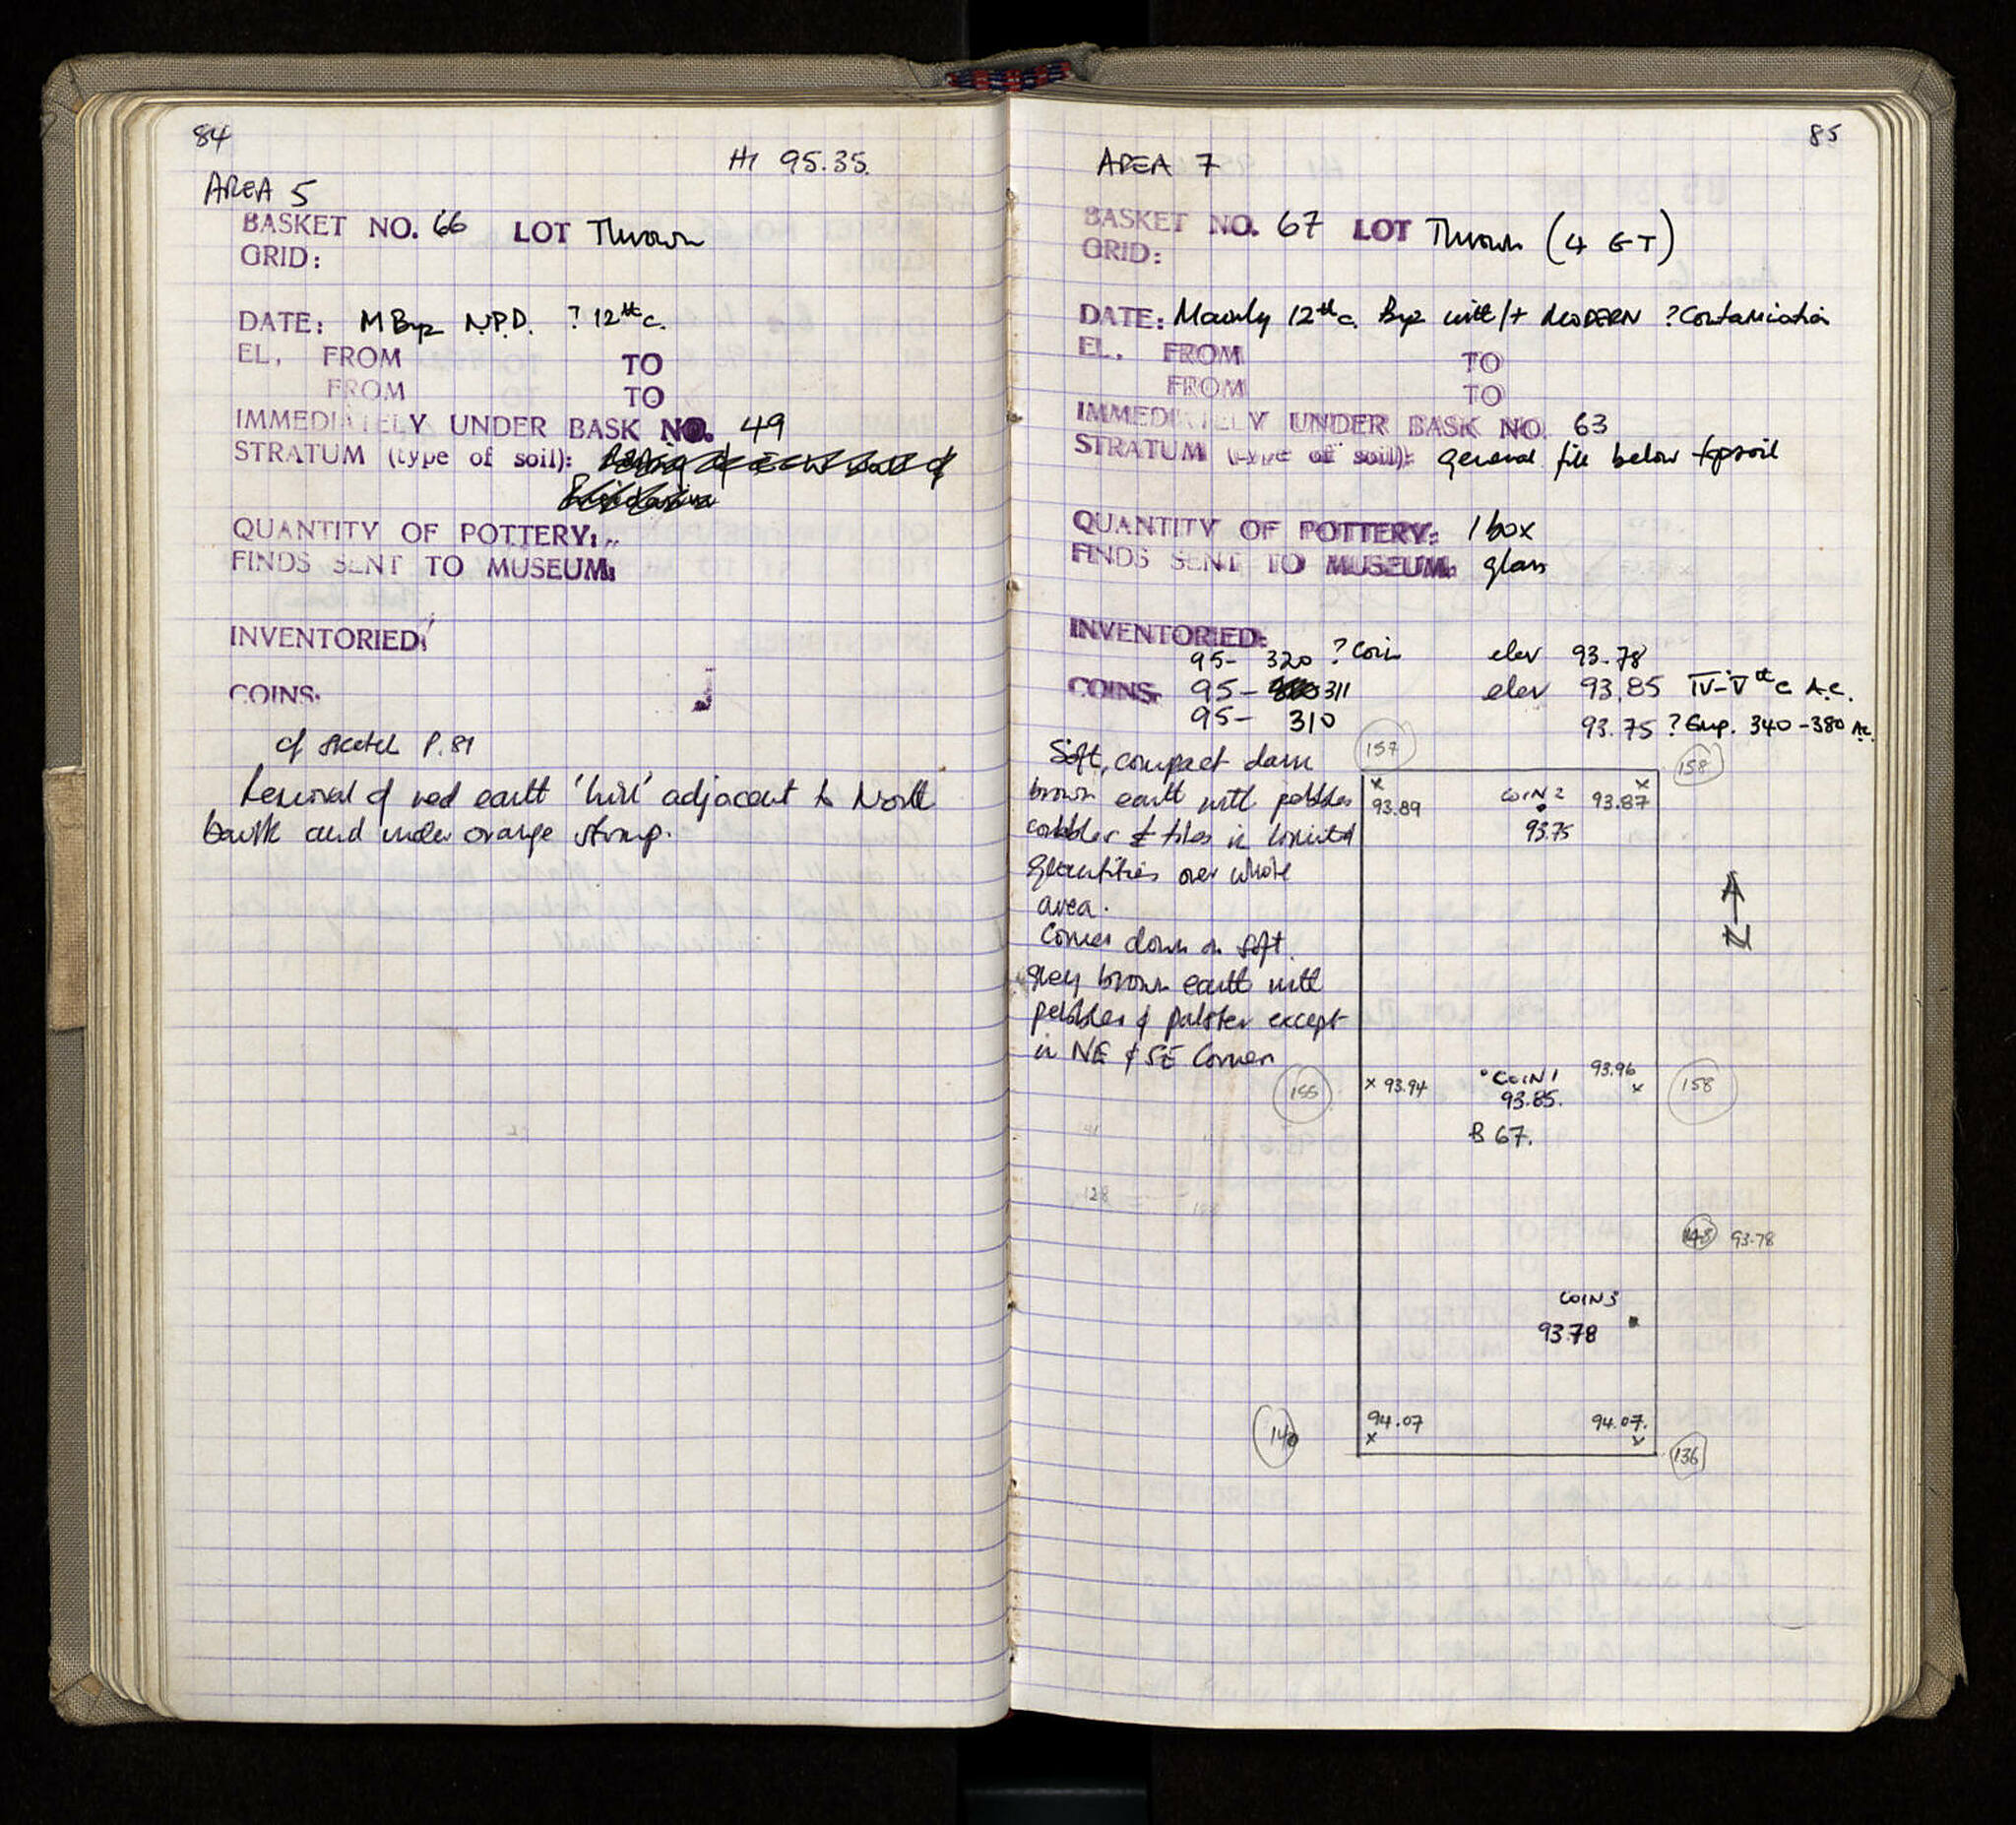 84
HI 95.35.
AREA 5
BASKET NO. 66 LOT Thrown
GRID:
DATE: MByz N.P.D. ? 12th c.
EL. FROM TO
FROM TO
IMMEDIATELY UNDER BASK NO. 49
STRATUM (type of soil):
QUANTITY OF POTTERY:
FINDS SENT TO MUSEUM:
INVENTORIED:
COINS:
cf sketch P. 81
Removal of red earth 'hill' adjacent to North
baulk and under orange strip.
85
AREA 7
BASKET NO. 67 LOT Thrown (4 GT)
GRID:
DATE: Mainly 12th c. Byz with 1+ MODERN ? Contamination
EL. FROM TO
FROM TO
IMMEDIATELY UNDER BASK NO. 63
STRATUM (type of soil): general fill below topsoil
QUANTITY OF POTTERY: 1 box
FINDS SENT TO MUSEUM: glass
INVENTORIED:
95- 320 ? Coin elev 93.78
COINS: 95- 311 elev 93.85 IV-Vth c A.C.
95- 310 93.75 ? Emp. 340-380 A.C.
Soft, compact dark
brown earth with pebbles
cobbles & tiles in limited
quantities over whole
area.
Comes down on soft
grey brown earth with
pebbles & palster except
in NE & SE Corner
157
158
x x
93.89 COIN 2 93.87
93.75
N
155 x 93.94 COIN 1 93.96 x 158
93.85.
B 67.
128
148 93.78
COIN 3
93.78
94.07 94.07.
x x
140
136